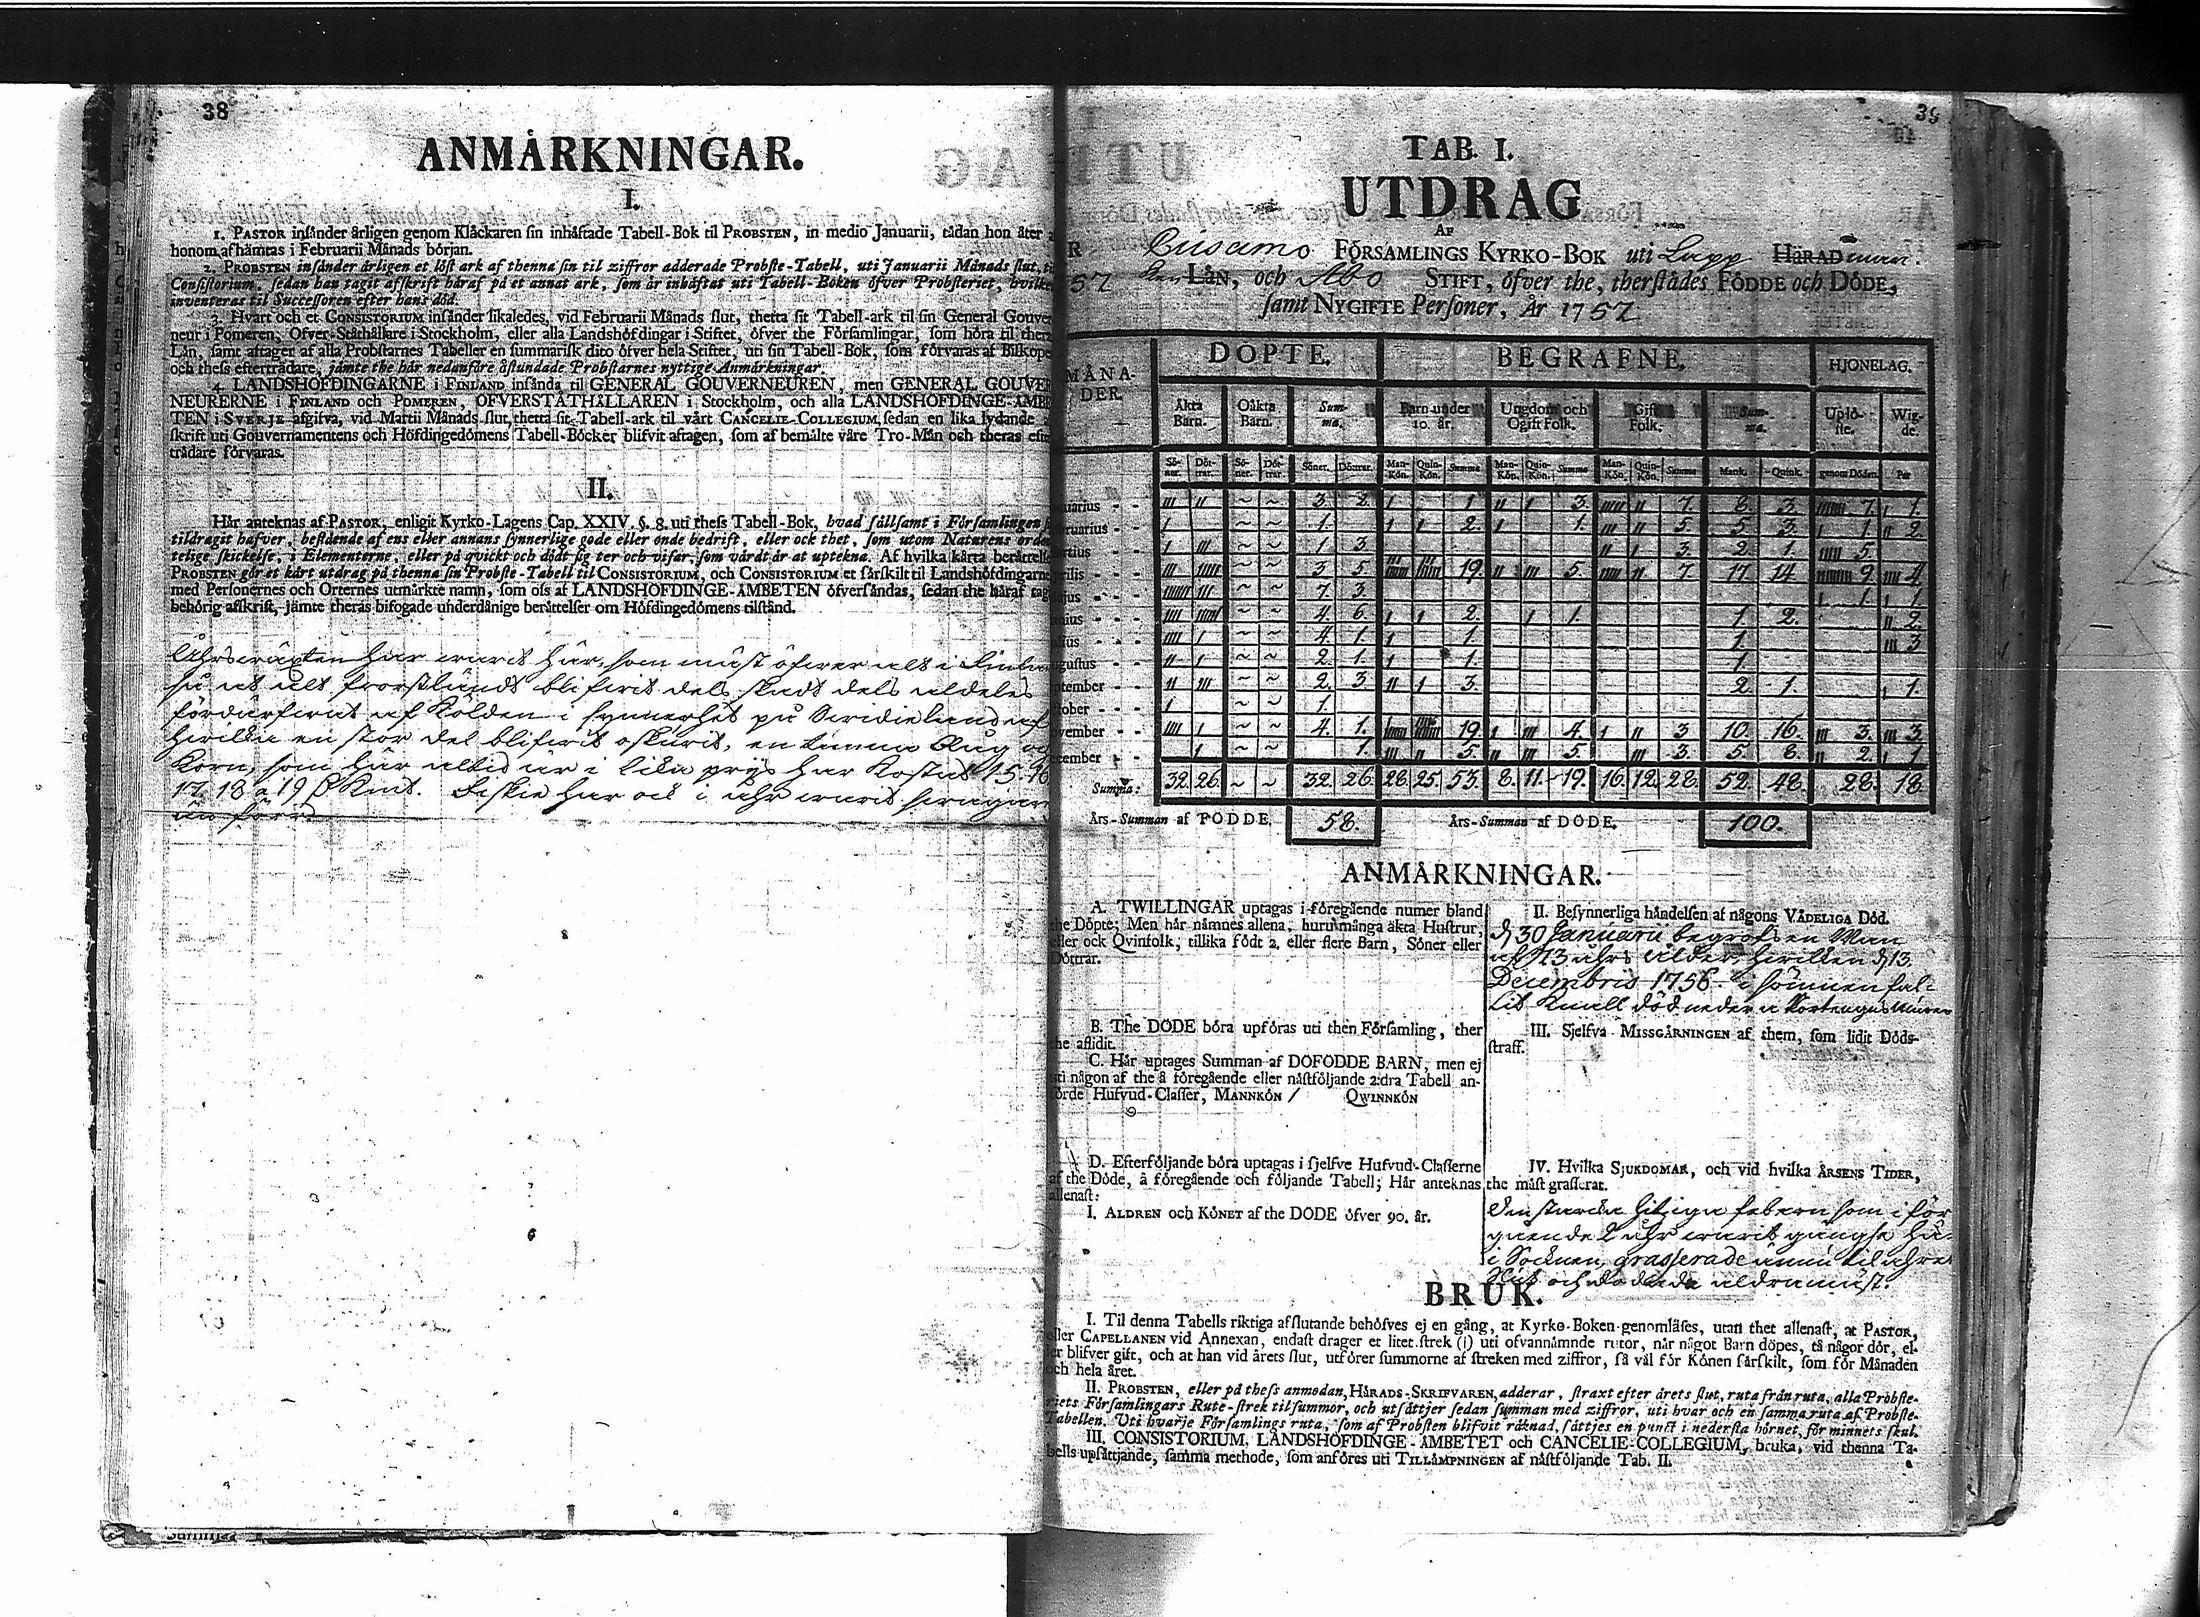 38
ANMÅRKNINGAR.
I.
1. PASTOR insånder årligen genom Klåckaren sin inhåftade Tabell-Bok til PROBSTEN, in medio Januarii, tådan hon åter
honom afhåmtas i Februarii Månads början.
2. PROBSTEN insånder årligen et löst ark af thenna sin til ziffror adderade Probste-Tabell, uti Januarii Månads slut, til
Consistorium, sedan han tagit afskrift håraf på et annat ark, som år inhåftat uti Tabell-Boken öfver Probsteriet, hvilken
inventeras til Successoren efter hans död.
3. Hvart och et CONSISTORIUM insånder likaledes, vid Februarii Månads slut, thetta sit Tabell-ark til sin General Gouver
neur i Pomeren, Öfver-Ståthållare i Stockholm, eller alla Landshöfdingar i Stiftet, öfver the Församlingar, som höra til thera
Lån, samt aftager af alla Probstarnes Tabeller en summarisk dito öfver hela Stiftet, uti sin Tabell-Bok, som förvaras af Biskope
och thess efterträdare, jämte the hår nedanföre åstundade Probstarnes nyttige Anmårkningar.
4. LANDSHÖFDINGARNE i FINLAND insånda til GENERAL GOUVERNEUREN, men GENERAL GOUVER
NEURERNE i FINLAND och POMEREN, ÖFVERSTÅTHÅLLAREN i Stockholm, och alla LANDSHÖFDINGE-ÅMBE
TEN i SVERJE afgifva, vid Martii Månads slut, thetta sit Tabell-ark til vårt CANCELIE-COLLEGIUM, sedan en lika lydande
skrift uti Gouvernamentens och Höfdingedömens Tabell-Böcker blifvit aftagen, som af bemålte våre Tro-Mån och theras efter
trådare förvaras.
II.
Hår anteknas af PASTOR, enligit Kyrko-Lagens Cap. XXIV. §. 8. uti thess Tabell-Bok, hvad sållsamt i Församlingen
tildragit håfver, bestående af ens eller annans synnerlige gode eller onde bedrift, eller ock thet, som utom Naturens orden
telige skickelse, i Elementerne, eller på qvickt och dödt sig ter och visar, som vårdt år at uptekna. Af hvilka kårta beråttelse
PROBSTEN gör et kårt utdrag på thenna sin Probste-Tabell til CONSISTORIUM, och CONSISTORIUM et sårskilt til Landshöfdingarne
med Personernes och Orternes utmårkte namn, som oss af LANDSHÖFDINGE-ÅMBETEN öfversåndas, sedan the håraf tag
behörig afskrift, jämte theras bifogade underdånige beråttelser om Höfdingedömens tilstånd.
Åhrswäxten har warit här, som mäst öfwer alt i Finla
så at alt blifwit dels skadt dels aldeles
fördärfwat af Kölden i synnerhet på
hwilka en stor del blifwit oskurit, en tunna Råg
Korn, som här altid är i lika prijs har kostat 15. 16
17. 18 a 19 Kmt. Fiskie har ock i åhr warit
än förr.
39
TAB. I.
UTDRAG
AF
Cusamo FÖRSAMLINGS KYRKO-BOK uti Lapp HÄRAD marc
LÅN, och Abo STIFT, öfver the, therstådes FÖDDE och DÖDE,
samt NYGIFTE Personer, År 1757
MÅNA-DER. DÖPTE. BEGRAFNE. HJONELAG.
Åkta Barn. Oåkta Barn. Sum-ma. Barn under 10. år. Ungdom och Ogift Folk. Gift Folk. Sum-ma. Uplö-ste. Wig-de.
Sö-ner. Döt-trar. Sö-ner. Döt-trar. Söner. Döttrar. Man-Kön. Quin-Kön. Summa Man-Kön. Quin-Kön. Summa Man-Kön. Quin-Kön. Summa Mank. Quink. genom Döden. Par
uarius III II ~ ~ 3. 2. I 1 II I 3. IIIII II 7. 8. 3. IIIIIII 7. I 1.
bruarius I ~ ~ 1. I I 2. I 1. III II 5 5 3. I 1. II 2.
artius I III ~ ~ 1. 3 II I 3. 2. 1. IIIII 5.
prilis III IIIII ~ ~ 3 5 19. II III 5. IIIII II 7. 17. 14. IIIIIIIII 9. IIII 4
ajus IIIIIII III ~ ~ 7. 3. I 1. I 1
unius IIII IIIIII ~ ~ 4. 6. I I 2. I 1. 1. 2. II 2.
ulius IIII I ~ ~ 4. 1. I 1. 1. III 3
gustus II I ~ ~ 2. 1. I 1. 1.
ptember II III ~ ~ 2. 3. II I 3. 2. 1. I 1.
tober I ~ ~ 1.
vember IIII I ~ ~ 4. 1. 19. I III 4. I II 3 10. 16. III 3. III 3
cember I ~ ~ 1. III II 5. II III 5. III 3. 5. 8. II 2. I 1
Summa: 32. 26. ~ ~ 32. 26. 28. 25. 53. 8. 11. 19. 16. 12. 28. 52. 48. 28. 18.
Års-Summan af FÖDDE. 58. Års-Summan af DÖDE. 100.
ANMÅRKNINGAR.
A. TWILLINGAR uptagas i föregående numer bland
the Döpte; Men hår nåmnes allena, huru många åkta Hustrur,
eller ock Qvinfolk, tillika födt 2. eller flere Barn, Söner eller
Döttrar.
B. The DÖDE böra upföras uti then Församling, ther
the aflidit.
C. Hår uptages Summan af DÖFÖDDE BARN, men ej
uti någon af the å föregående eller nåstföljande 2:dra Tabell an-
förde Hufvud-Classer, MANNKÖN / QWINNKÖN
D. Efterföljande böra uptagas i sjelfve Hufvud-Classerne
af the Döde, å föregående och följande Tabell; Hår anteknas
allenast:
I. ÅLDREN och KÖNET af the DÖDE öfver 90. år.
II. Besynnerliga håndelsen af någons VÅDELIGA Död.
d 30 Januarii begrofs en Man
af 23 åhrs ålder, hwilken d 13.
Decembris 1756. i sömnen fal-
lit död neder
III. Sjelfva MISSGÅRNINGEN af them, som lidit Döds-
straff.
IV. Hvilka SJUKDOMAR, och vid hvilka ÅRSENS TIDER,
the måst grasserat.
Den starcka hitziga febern som i för
gående åhr warit gängse hä-
i Socknen, grasserade ännu til åhrets
Slut och dödade aldramäst.
BRUK.
I. Til denna Tabells riktiga afslutande behöfves ej en gång, at Kyrko-Boken genomläses, utan thet allenast, at PASTOR,
eller CAPELLANEN vid Annexan, endast drager et litet strek (i) uti ofvannåmnde rutor, når något Barn döpes, tå någor dör, el-
ler blifver gift, och at han vid årets slut, utförer summorne af streken med ziffror, så vål för Könen sårskilt, som för Månaden
och hela året.
II. PROBSTEN, eller på thess anmodan, HÅRADS-SKRIFVAREN, adderar, straxt efter årets slut, ruta från ruta, alla Probste-
riets Församlingars Rute-strek til summor, och utsåttjer sedan summan med ziffror, uti hvar och en samma ruta af Probste-
Tabellen. Uti hvarje Församlings ruta, som af Probsten blifvit råknad, såttjes en punct i nedersta hörnet, för minnets skul.
III. CONSISTORIUM, LANDSHÖFDINGE-ÅMBETET och CANCELIE-COLLEGIUM, bruka, vid thenna Ta-
bells upsåttjande, samma methode, som anföres uti TILLÅMPNINGEN af nåstföljande Tab. II.